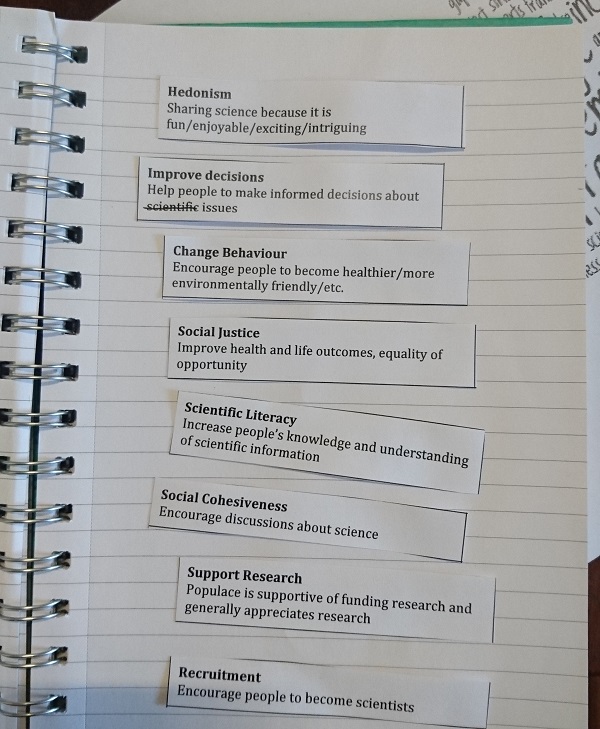 Hedonism
Sharing science because it is
fun/enjoyable/exciting/intriguing
Improve decisions
Help people to make informed decisions about
scientific issues
Change Behaviour
Encourage people to become healthier/more
environmentally friendly/etc.
Social Justice
Improve health and life outcomes, equality of
opportunity
Scientific Literacy
Increase people's knowledge and understanding
of scientific information
Social Cohesiveness
Encourage discussions about science
Support Research
Populace is supportive of funding research and
generally appreciates research
Recruitment
Encourage people to become scientists